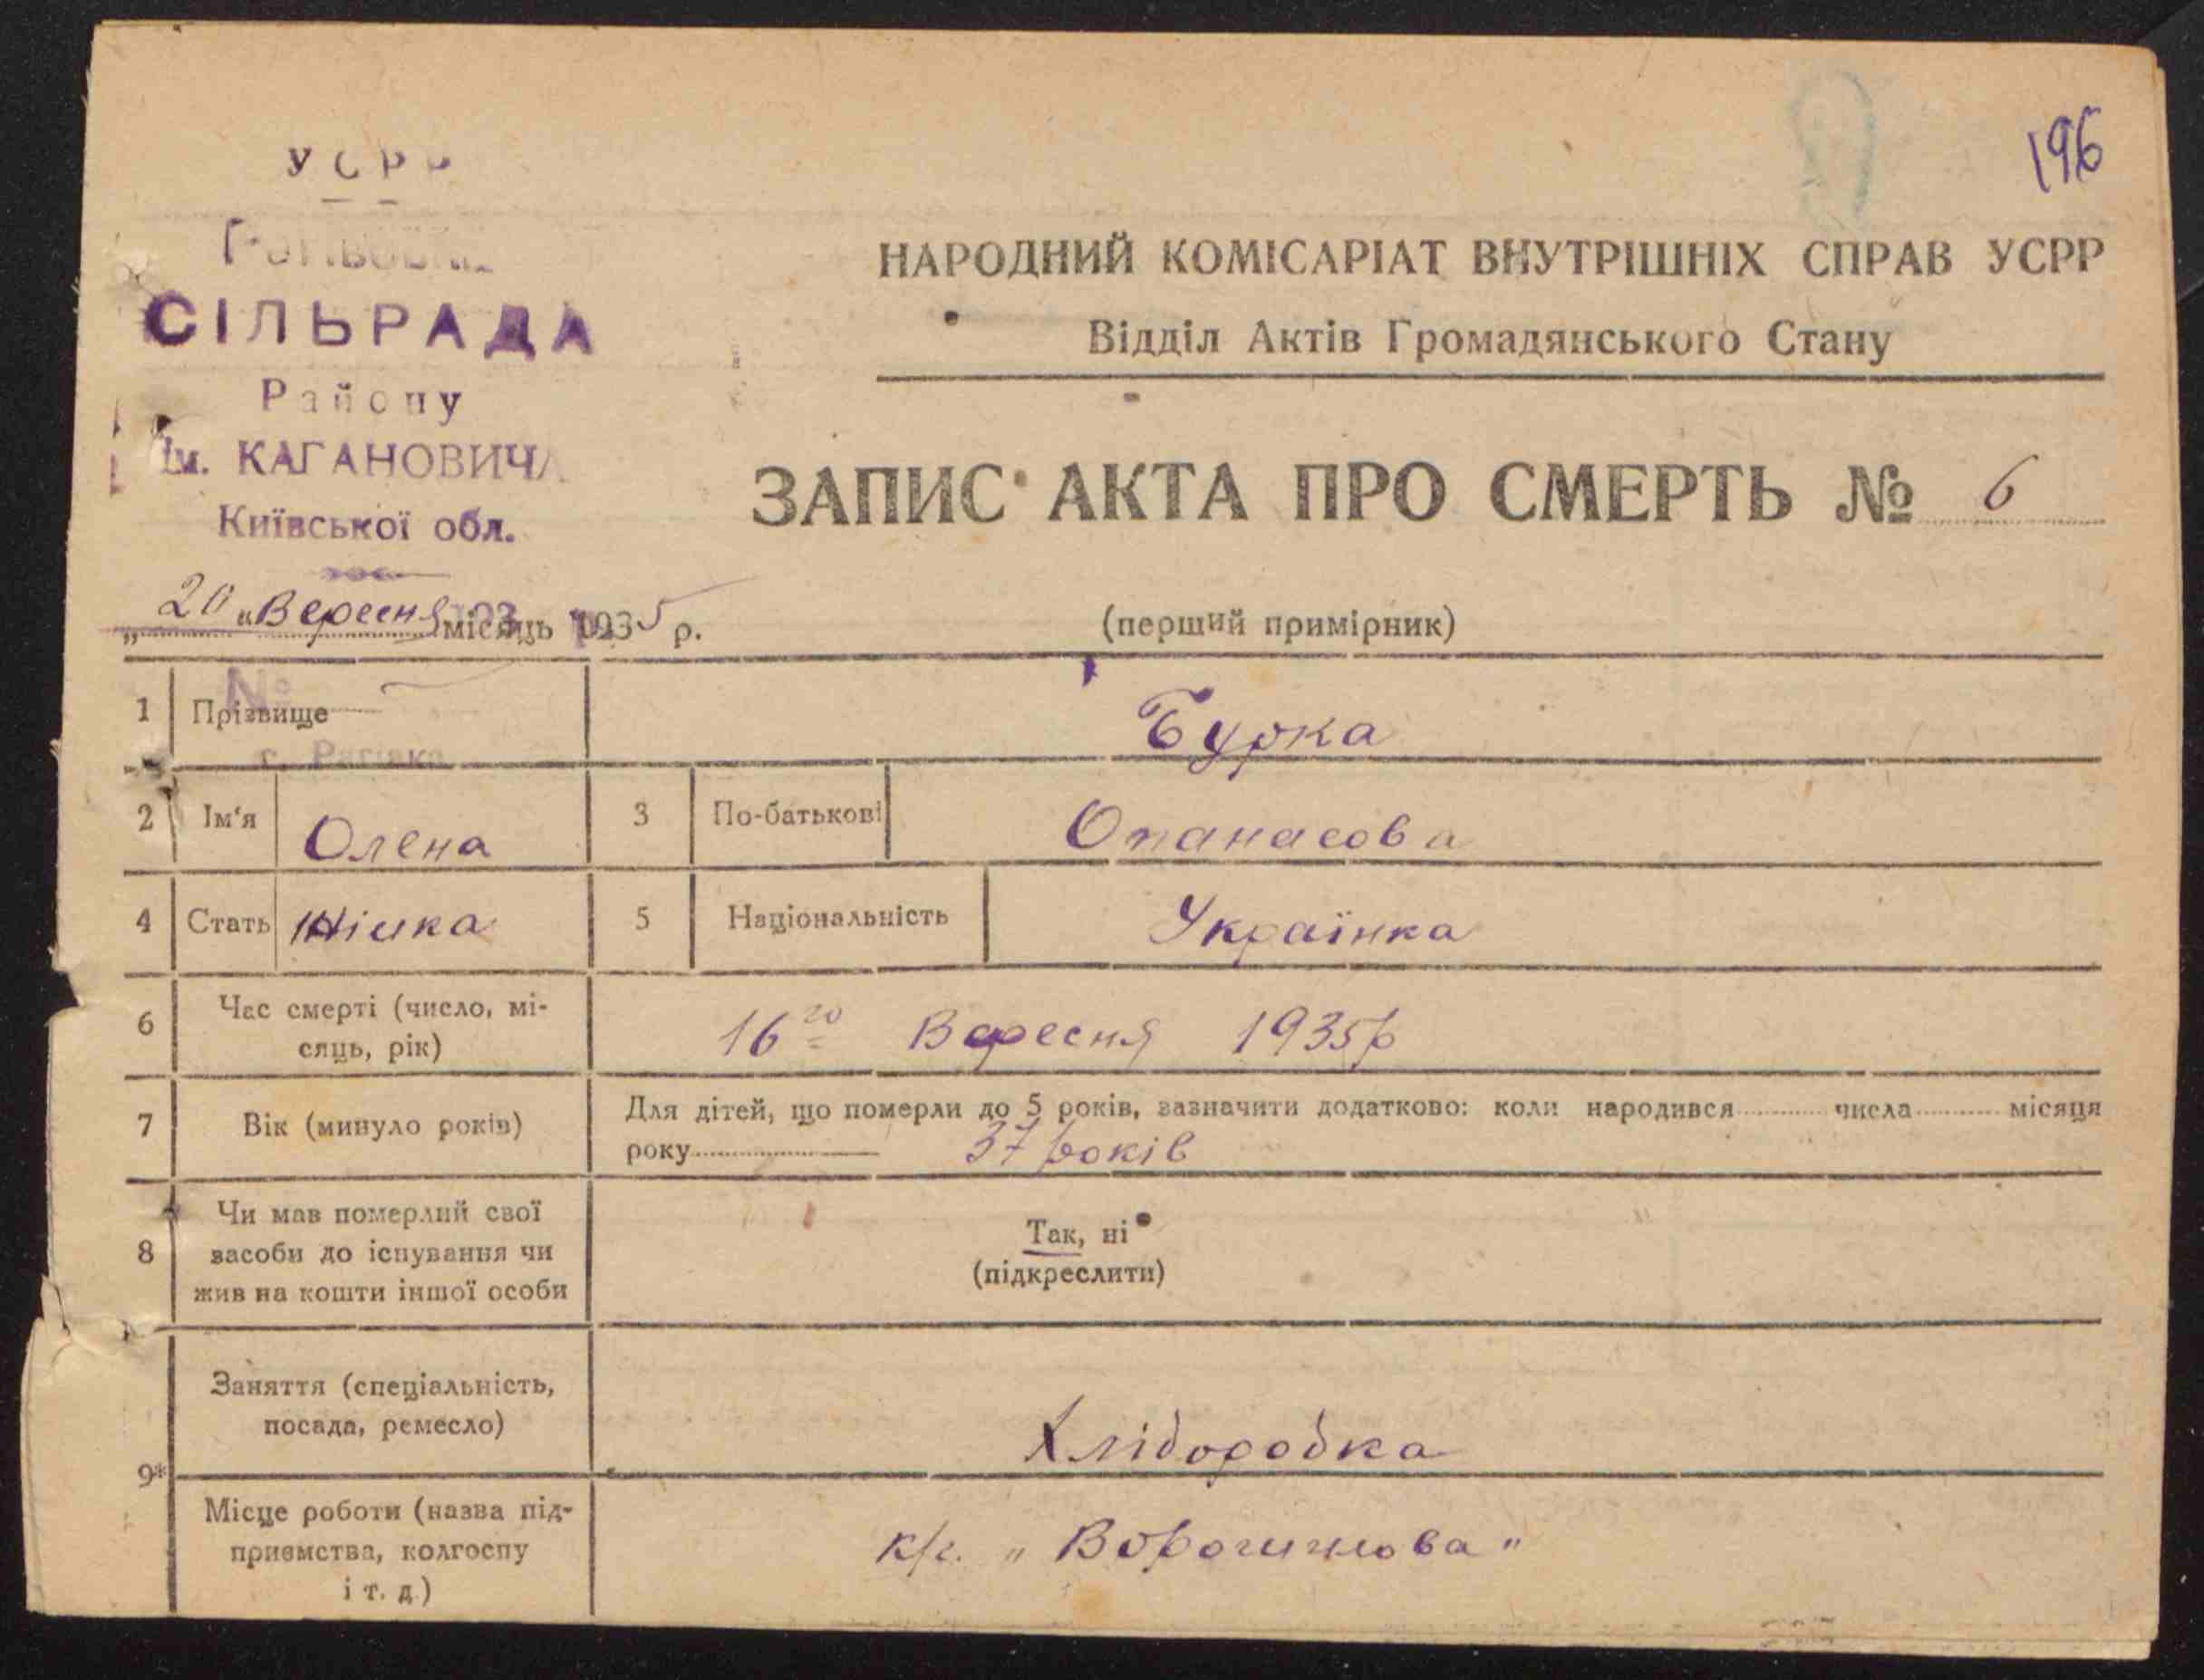 196
УСРР
СІЛЬРАДА
Району
Ім. КАГАНОВИЧА
Київської обл.
НАРОДНИЙ КОМІСАРІАТ ВНУТРІШНІХ СПРАВ УСРР
Відділ Актів Громадянського Стану
ЗАПИС АКТА ПРО СМЕРТЬ № 6
„20" Вересня місяць 1935 р.
(перший примірник)
1 Прізвище Бурка
№
2 Ім'я Олена 3 По-батькові Опанасова
4 Стать Жінка 5 Національність Українка
6 Час смерті (число, мі-
сяць, рік) 16го Вересня 1935р
7 Вік (минуло років) Для дітей, що померли до 5 років, зазначити додатково: коли народився числа місяця
року 37 років
8 Чи мав померлий свої
засоби до існування чи
жив на кошти іншої особи
Так, ні
(підкреслити)
9* Заняття (спеціальність,
посада, ремесло) Хліборобка
Місце роботи (назва під-
приємства, колгоспу
і т. д.) к/г. „Ворошилова"